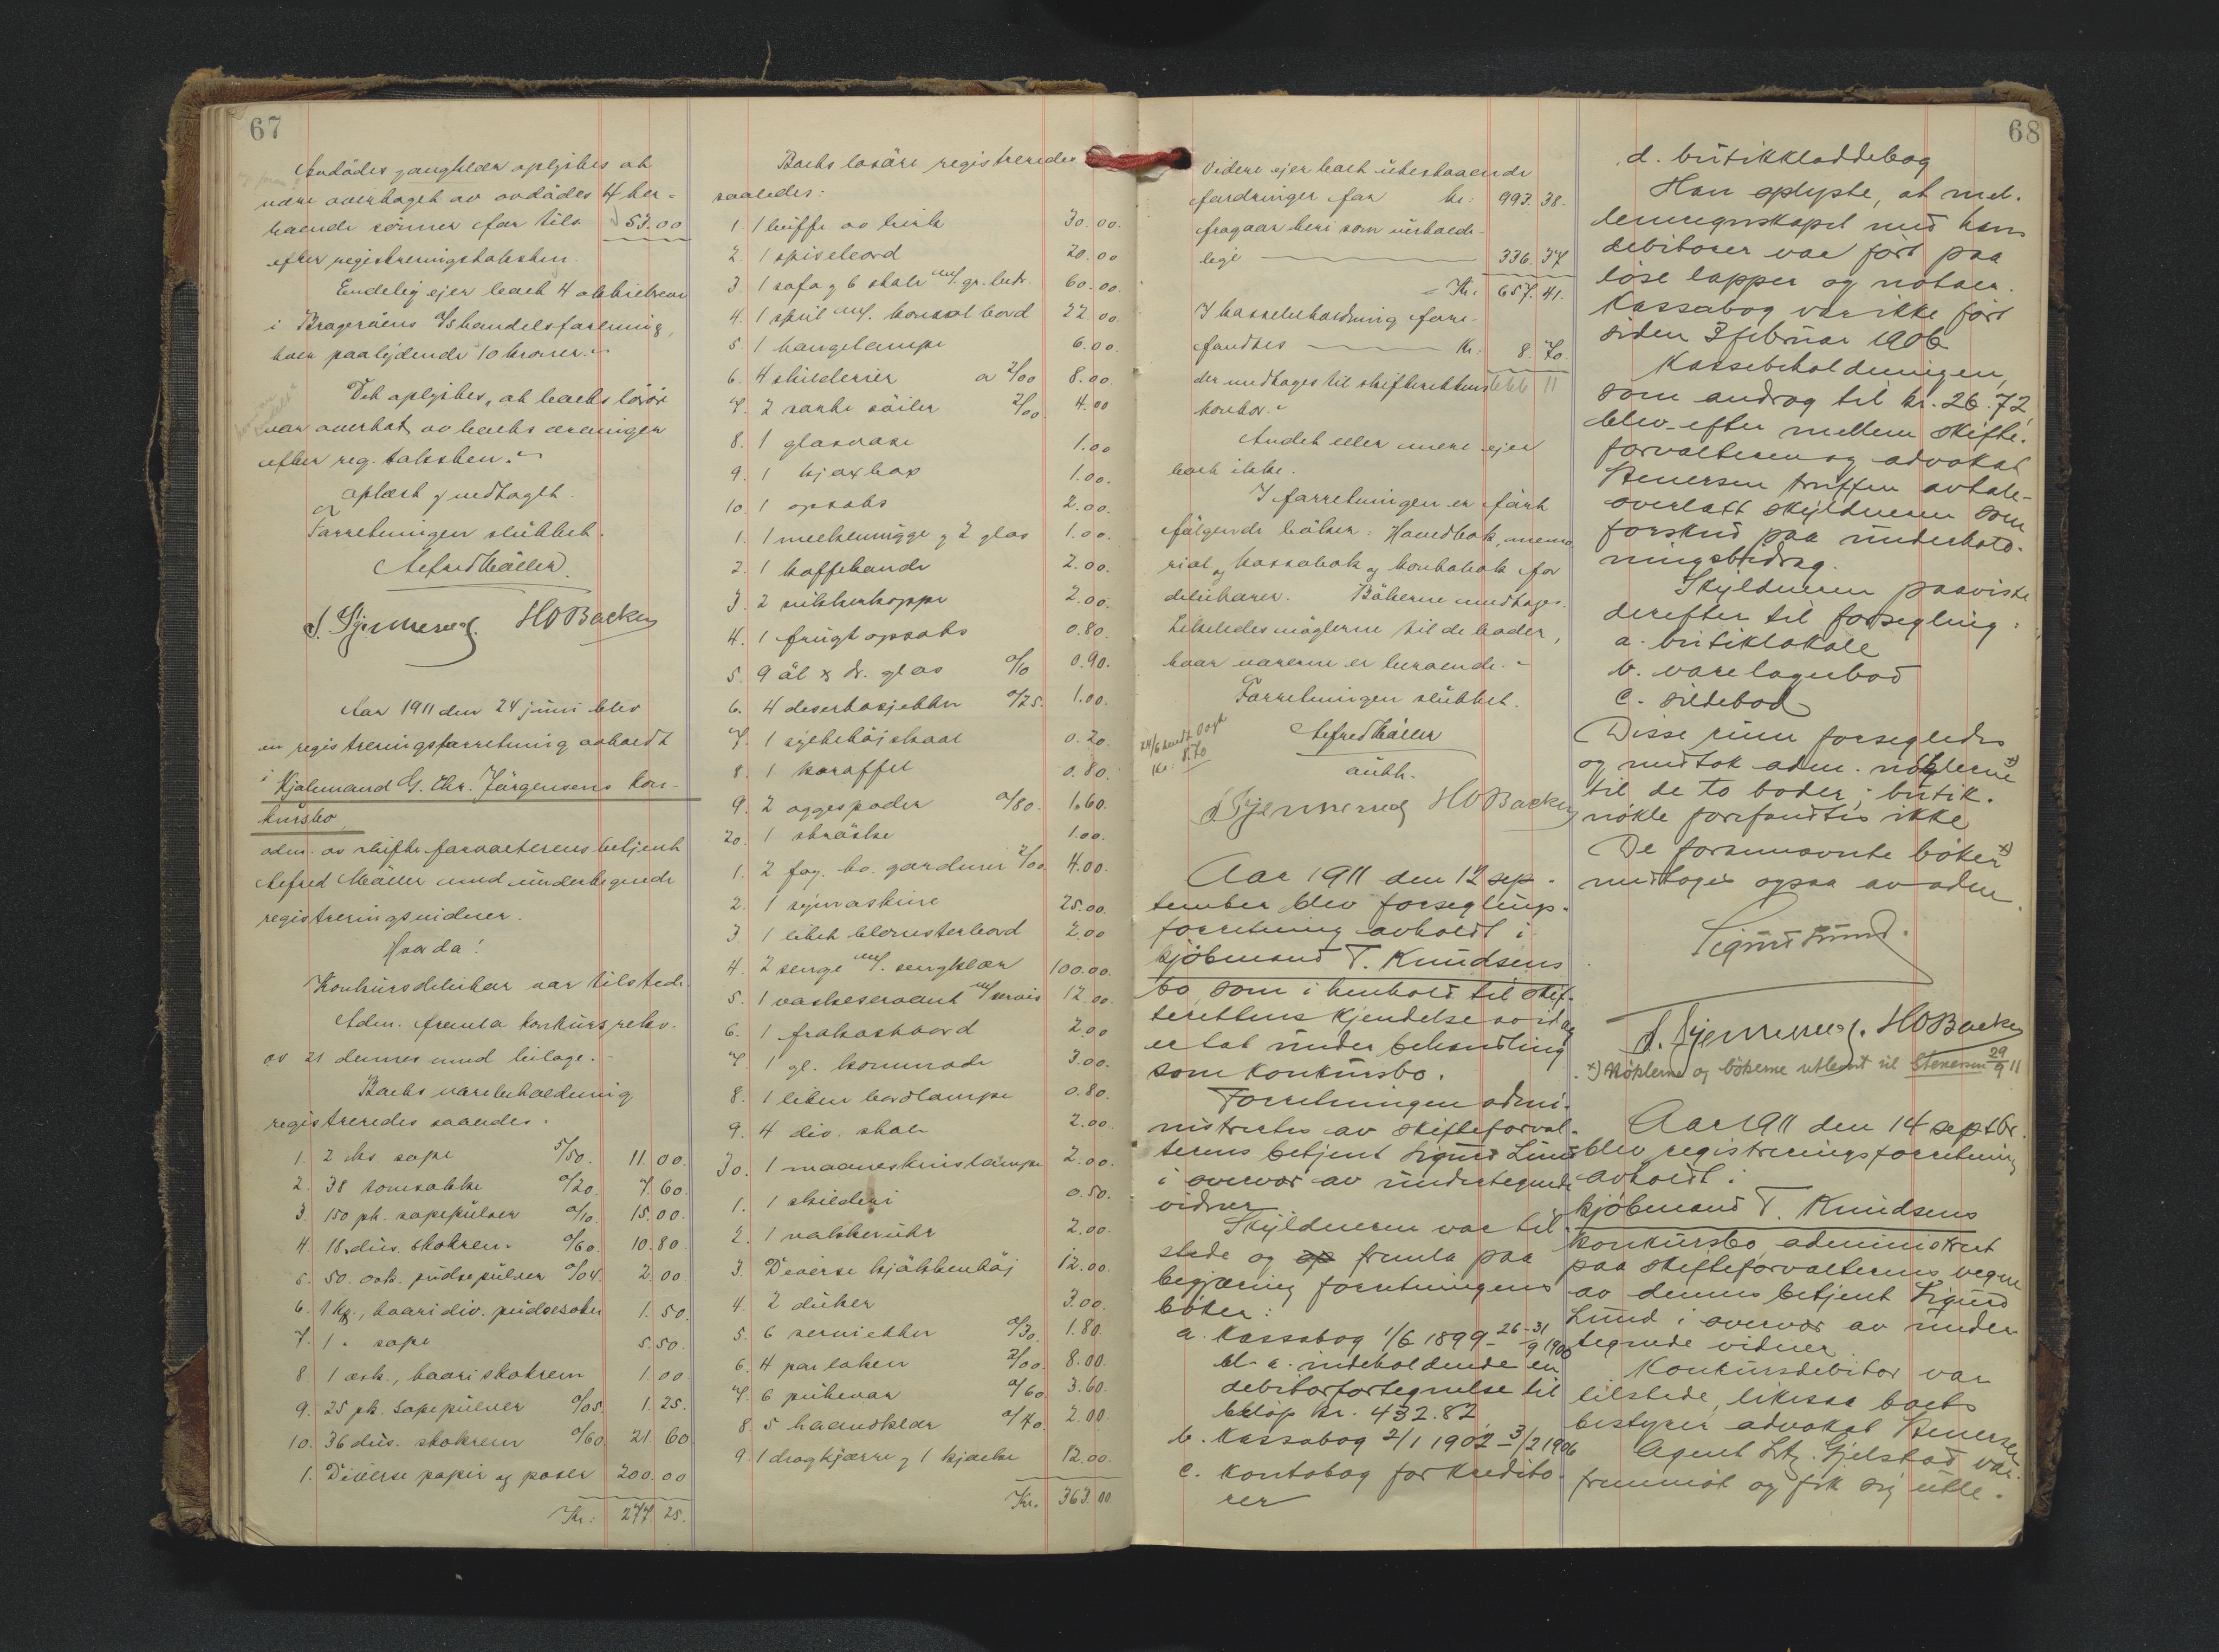 67
Avdödes gangklær oplystes at
være overtaget av avdödes 4 her-
boende sönner for tils. 53.00
efter registreringstaksten.
Endelig ejer boet 4 aktiebrev
i Bragerøens a/s handelsforening,
hver paalydende 10 kroner.
Det oplystes, at boets lösöre
var overtat av boets arvinger
efter reg. taksten.
Oplæst og vedtaget.
Forretningen sluttet.
Alfred Möller
HOBacken
Aar 1911 den 24 juni blev
en registreringsforretning avholdt
i Kjøbmand G. Chr. Jørgensens kon-
kursbo,
adm. av skifteforvalterens betjent
Alfred Möller med undertegnede
registreringsvidner.
Hvorda!
Konkursdebitor var tilstede.
Adm. fremla konkursrekv.
av 21 dennes med bilage.
Boets varebeholdning
registreredes saaledes:
1. 2 ks. sæpe 5/50. 11.00.
2. 38 tomsække 0/20. 7.60.
3. 150 pk. sæpepulver 0/10. 15.00.
4. 18 dus. skokrem 0/60. 10.80.
5. 50 æsk. pudsepulver 0/04. 2.00.
6. 1 kg., hvori div. pudsesaker 1.50.
7. 1 " sæpe 5.50.
8. 1 æsk., hvori skokrem 1.00.
9. 25 pk. sæpepulver 0/05. 1.25.
10. 36 dus. skokrem 0/60. 21.60.
1. Diverse papir og poser 200.00
Kr.: 277.25.
Boets lösöre registreredes
saaledes:
1. 1 buffe av birk 30.00.
2. 1 spisebord 20.00
3. 1 sofa og 6 stole m/. gr. betr. 60.00.
4. 1 speil m/. konsolbord 22.00.
5. 1 hængelampe 6.00.
6. 4 skilderier a 2/00 8.00.
7. 2 sorte söiler 2/00. 4.00
8. 1 glasvase 1.00
9. 1 1.00.
10. 1 opsats 2.00.
1. 1 melkemugge og 2 glas 1.00.
2. 1 kaffekande 2.00.
3. 2 sukkerkopper 2.00.
4. 1 frugtopsats 0.80.
5. 9 öl & dr. glas 0/10 0.90.
6. 4 desertasjetter 0/25. 1.00.
7. 1 syltetöjskaal 0.20.
8. 1 karaffel 0.80.
9. 2 0/80. 1.60.
20. 1 1.00.
1. 2 fag. bo. gardiner 2/00 4.00.
2. 1 symaskine 25.00.
3. 1 litet blomsterbord 2.00
4. 2 senge m/. sengklær 100.00.
5. 1 vaskeservant m/servis 12.00.
6. 1 frokostbord 2.00
7. 1 gl. kommode 3.00.
8. 1 liten bordlampe 0.80.
9. 4 div. stole 2.00.
30. 1 maaneskinslampe 2.00.
1. 1 skilderi 0.50.
2. 1 vækkeruhr 2.00.
3. Diverse kjökkentöj 12.00.
4. 2 duker 3.00.
5. 6 servietter 0/30. 1.80.
6. 4 par laken 2/00. 8.00.
7. 6 putevar 0/60. 3.60.
8. 5 haandklær 0/40. 2.00.
9. 1 dragkjærre og 1 kjælke 12.00.
Kr. 363.00.
68
Videre ejer boet utestaaende
fordringer for kr: 993.38.
fragaar heri som uerholde-
lige 336.37
Kr. 657.41.
I kassebeholdning fore-
fandtes Kr. 8.70.
der medtages til skifterettens 666 11
kontor.
Andet eller mere ejer
boet ikke.
I forretningen er fört
fölgende böker: Hovedbok, memo
rial, kassabok og kontobok for
debitorer. Bökerne medtages.
Likeledes nöglerne til de boder,
hvor varerne er beroende.
Forretningen sluttet.
24/6
Kr: 8.70
Alfred Möller
auth.
HOBacken
Aar 1911 den 12 sep-
tember blev forseglings-
forretning avholdt i
kjøbmand T. Knudsens
bo, som i henhold til skif-
terettens kjendelse av idag
er tat under behandling
som konkursbo.
Forretningen admi-
nistrertes av skifteforval-
terens betjent Sigurd Lund
i overvær av undertegnede
vidner
Skyldneren var til-
stede og fremla paa
begjæring forretningens
bøker:
a. Kassabog 1/6 1899 – 26-31
9 1900
bl. a. indeholdende en
debitorfortegnelse til
beløp kr. 432.82
b. Kassabog 2/1 1902 – 3/2 1906
c. kontobog for kredito-
rer
d. butikkladdebog
Han oplyste, at mel-
lemregnskapet med hans
debitorer var ført paa
løse lapper og notaer.
Kassabog var ikke ført
siden 3 februar 1906
Kassebeholdningen,
som androg til kr. 26.72,
blev efter mellem skifte-
forvalteren og advokat
Stenersen truffen avtale
overlatt skyldneren som
forskud paa underhold-
ningsbidrag.
Skyldneren paaviste
derefter til forsegling:
a. butiklokale
b. varelagerbod
c. sildebod
Disse rum forsegledes
og mottok adm. nøklerne x)
til de to boder; butik-
nøkle forefandtes ikke
De forannævnte bøker x)
medtoges ogsaa av adm.
Sigurd Lund.
HOBacken
x) Nøklerne og bøkerne utlevert til Stenersen 29/9 11
Aar 1911 den 14 septbr.
blev registreringsforretning
avholdt i
kjøbmand T. Knudsens
konkursbo, administrert
paa skifteforvalterens vegne
av dennes betjent Sigurd
Lund i overvær av under-
tegnede vidner
Konkursdebitor var
tilstede, likesaa boets
bestyrer advokat Stenersen
Agent Gjelstad var
fremmøt og fik sig utle-